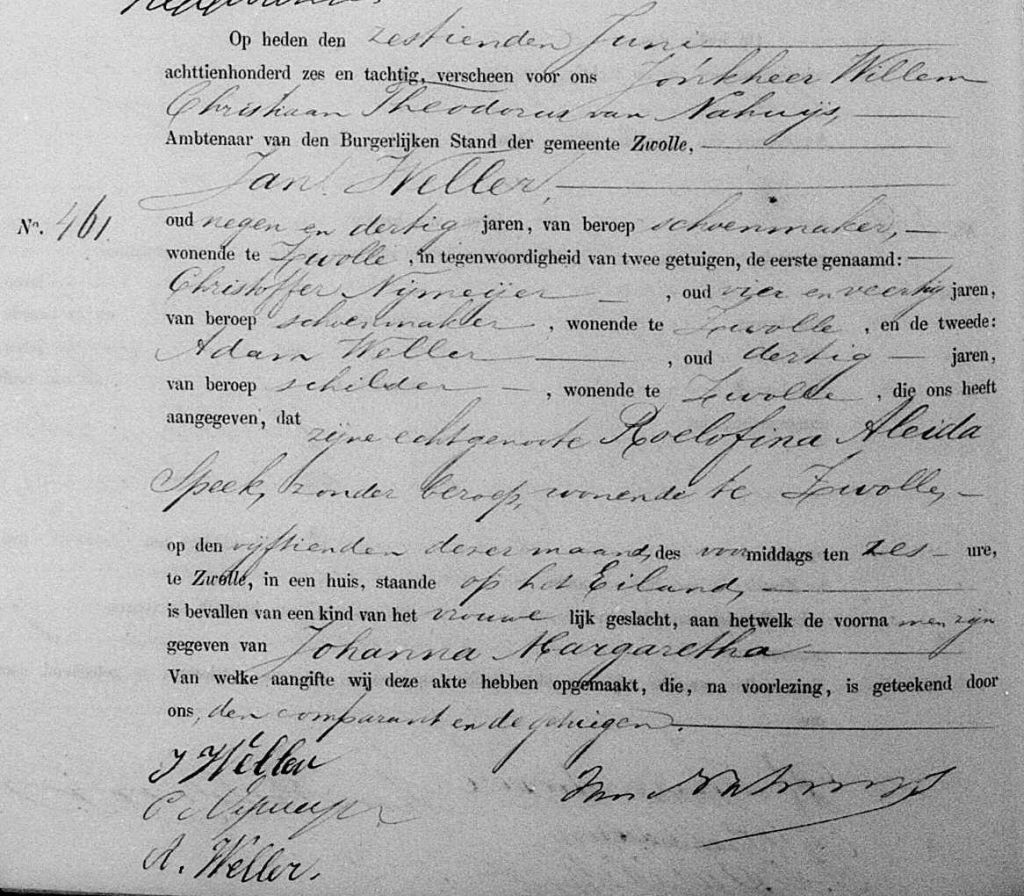 Op heden den zestienden Juni
achttienhonderd zes en tachtig, verscheen voor ons Jonkheer Willem
Christiaan Theodorus van Nahuijs,
Ambtenaar van den Burgerlijken Stand der gemeente Zwolle,
Jan Weller,
No. 461.
oud negen en dertig jaren, van beroep schoenmaker,
wonende te Zwolle, in tegenwoordigheid van twee getuigen, de eerste genaamd:
Christoffer Nijmeijer, oud vier en veertig jaren,
van beroep schoenmaker, wonende te Zwolle, en de tweede:
Adam Weller, oud dertig jaren,
van beroep schilder, wonende te Zwolle, die ons heeft
aangegeven, dat zijne echtgenoote Roelofina Aleida
Speek, zonder beroep, wonende te Zwolle,
op den vijftienden dezer maand, des voormiddags ten zes ure,
te Zwolle, in een huis, staande op het Eiland,
is bevallen van een kind van het vrouwelijk geslacht, aan hetwelk de voornamen zijn
gegeven van Johanna Margaretha
Van welke aangifte wij deze akte hebben opgemaakt, die, na voorlezing, is geteekend door
ons, den comparant en de getuigen.
J Weller
A. Weller.